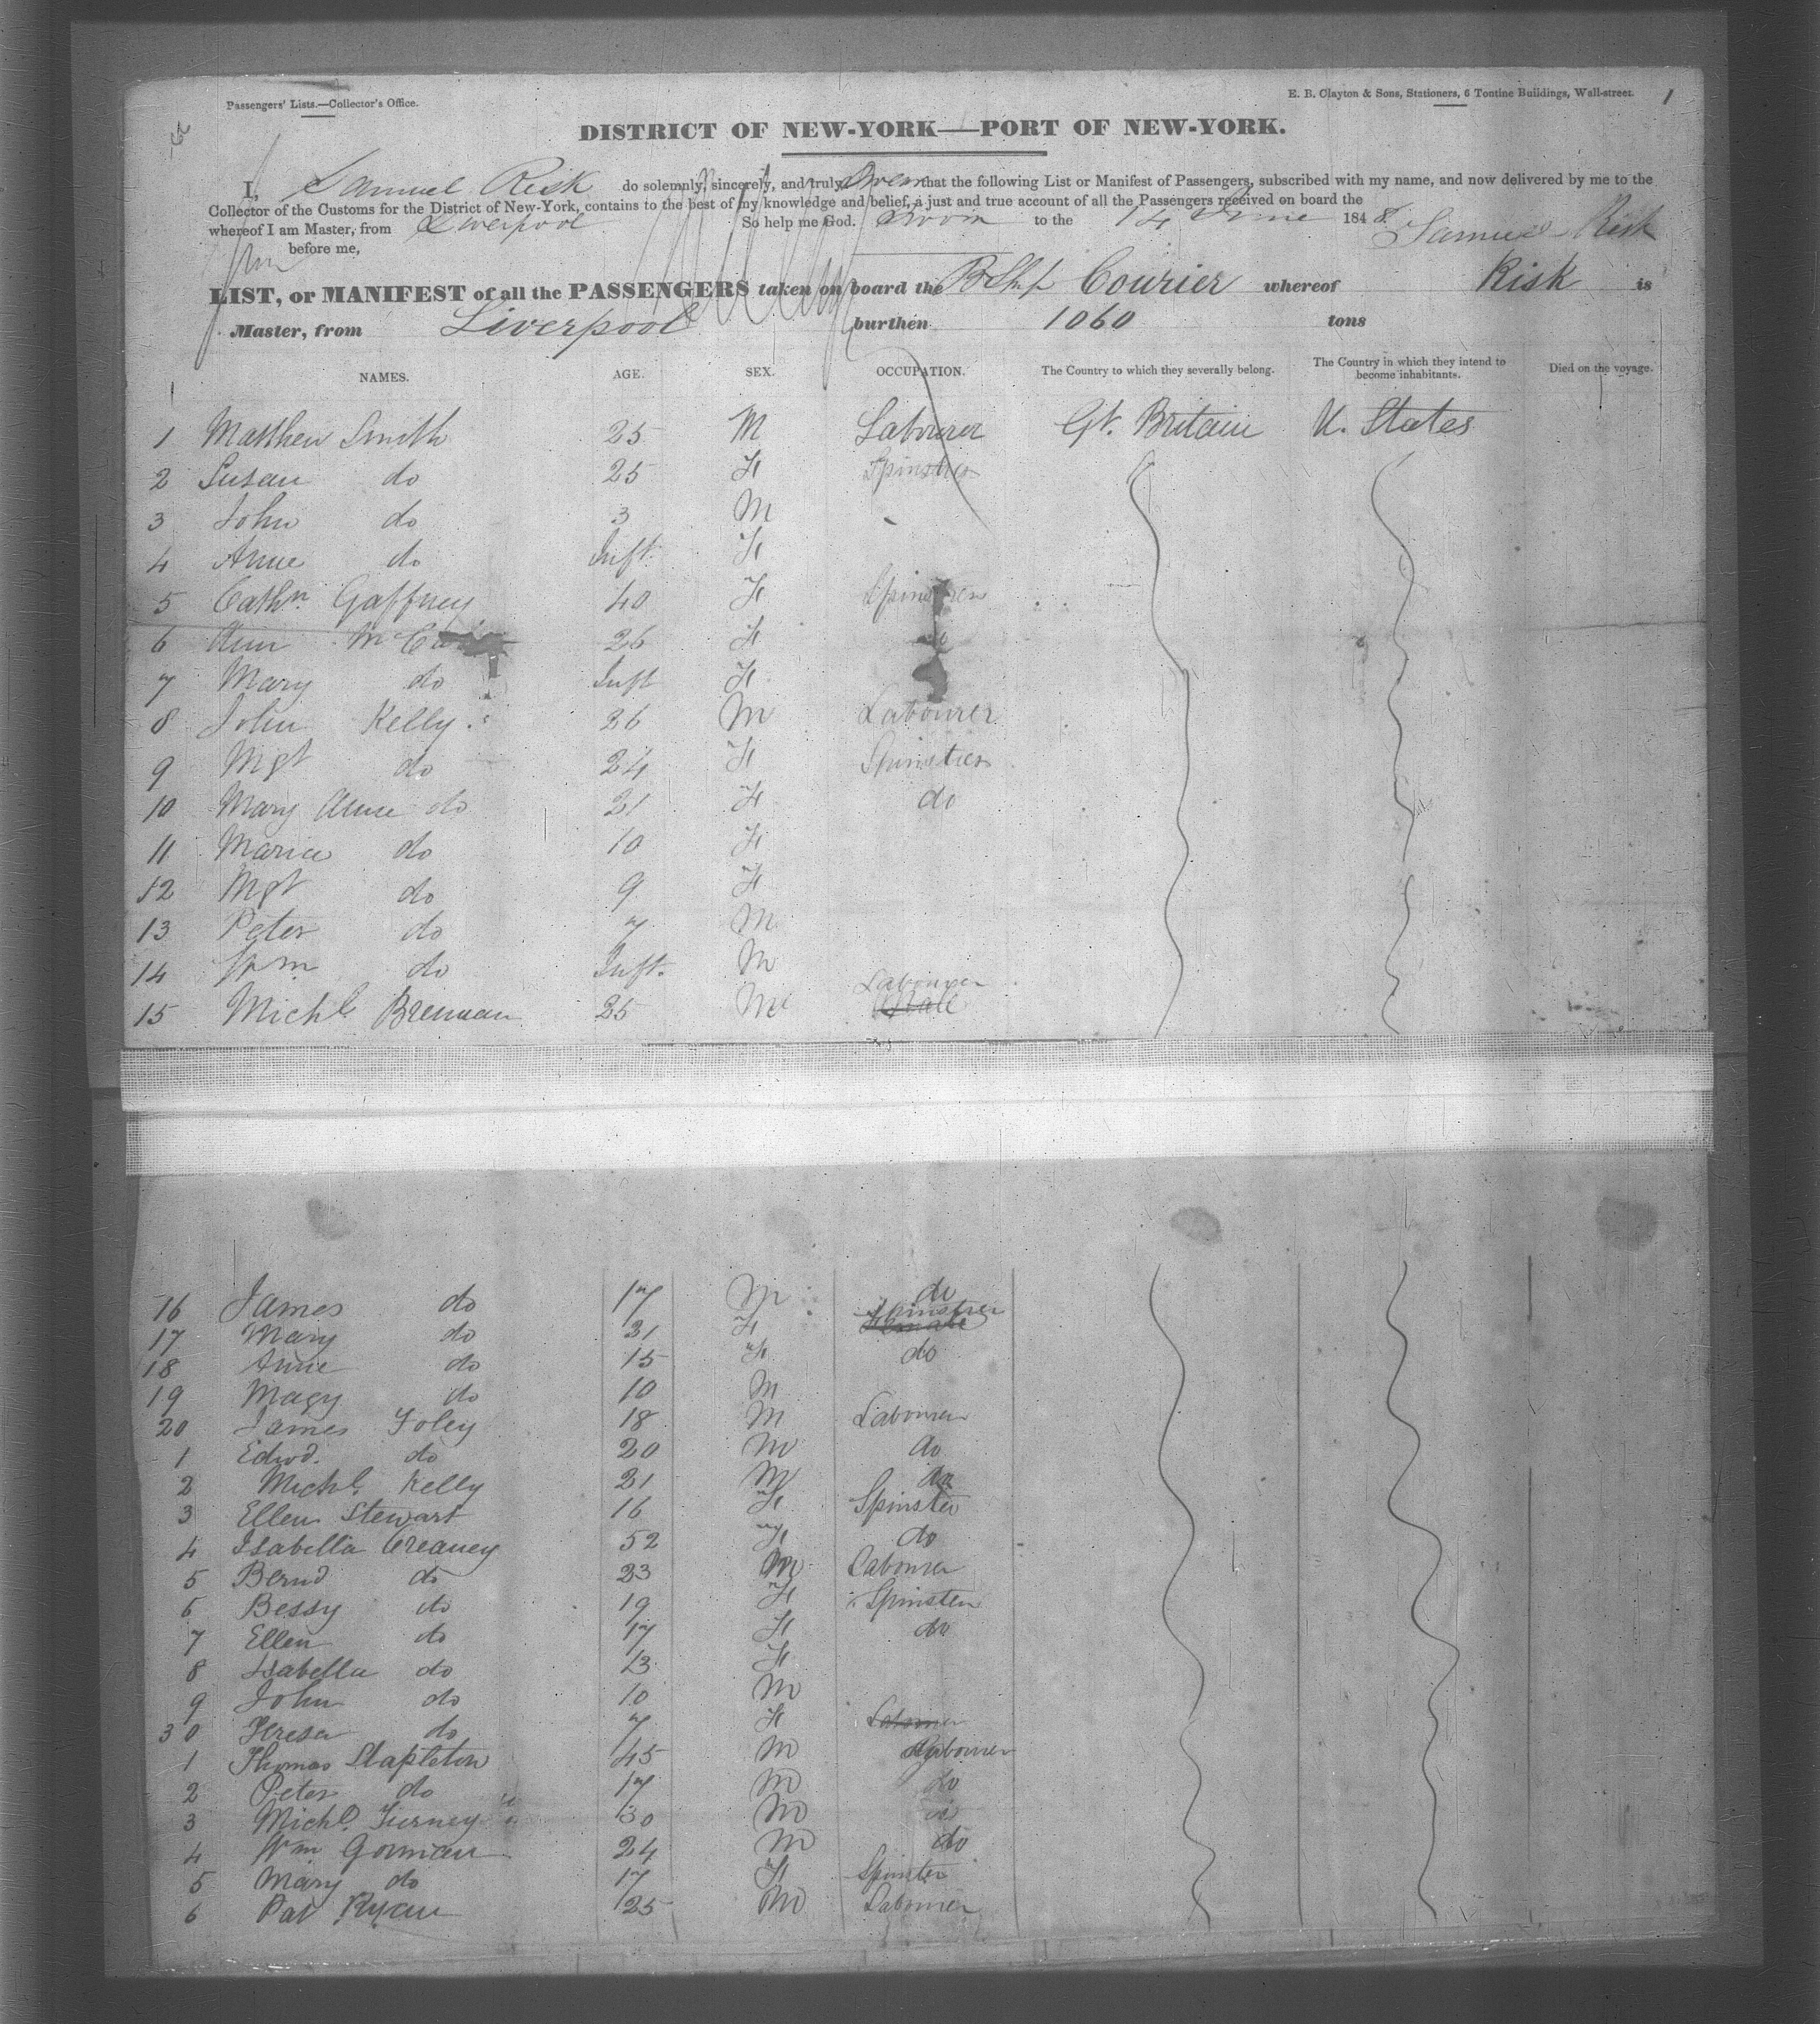 Passengers' Lists.—Collector's Office.
E. B. Clayton & Sons, Stationers, 6 Tontine Buildings, Wall-street. 1
DISTRICT OF NEW-YORK—PORT OF NEW-YORK.
I, Samuel Risk do solemnly, sincerely, and truly Swear that the following List or Manifest of Passengers, subscribed with my name, and now delivered by me to the
Collector of the Customs for the District of New-York, contains to the best of my knowledge and belief, a just and true account of all the Passengers received on board the
whereof I am Master, from Liverpool So help me God. Sworn to the 14 June 1848 Samuel Risk
before me,
LIST, or MANIFEST of all the PASSENGERS taken on board the Courier whereof Risk is
Master, from Liverpool burthen 1060 tons
NAMES. AGE. SEX. OCCUPATION. The Country to which they severally belong. The Country in which they intend to become inhabitants. Died on the voyage.
1 Matthew Smith 25 M Labourer Gt. Britain U. States
2 Susan do 25 F Spinster
3 John do 3 M
4 Anne do Inft. F
5 Cathn Gaffney 40 F Spinster
6 Ann 26 F
7 Mary do Inft F
8 John Kelly 26 M Labourer
9 Mgt do 24 F Spinster
10 Mary Anne do 21 F do
11 Maria do 10 F
12 Mgt do 9 F
13 Peter do 7 M
14 Wm do Inft. M
15 Michl Brennan 25 M Labourer
16 James do 17 M do
17 Mary do 21 F Spinster
18 Anne do 15 F do
19 Magy do 10 M
20 James Foley 18 M Labourer
1 Edwd. do 20 M do
2 Michl. Kelly 21 M do
3 Ellen Stewart 16 F Spinster
4 Isabella Creaney 52 F do
5 Bernd do 23 M Labourer
6 Bessy do 19 F Spinster
7 Ellen do 17 F do
8 Isabella do 13 F
9 John do 10 M
30 Teresa do 7 F Labourer
1 Thomas Stapleton 45 M Labourer
2 Peter do 17 M do
3 Michl. Turney 30 M do
4 Wm Gorman 24 M do
5 Mary do 17 F Spinster
6 Pat Ryan 25 M Labourer